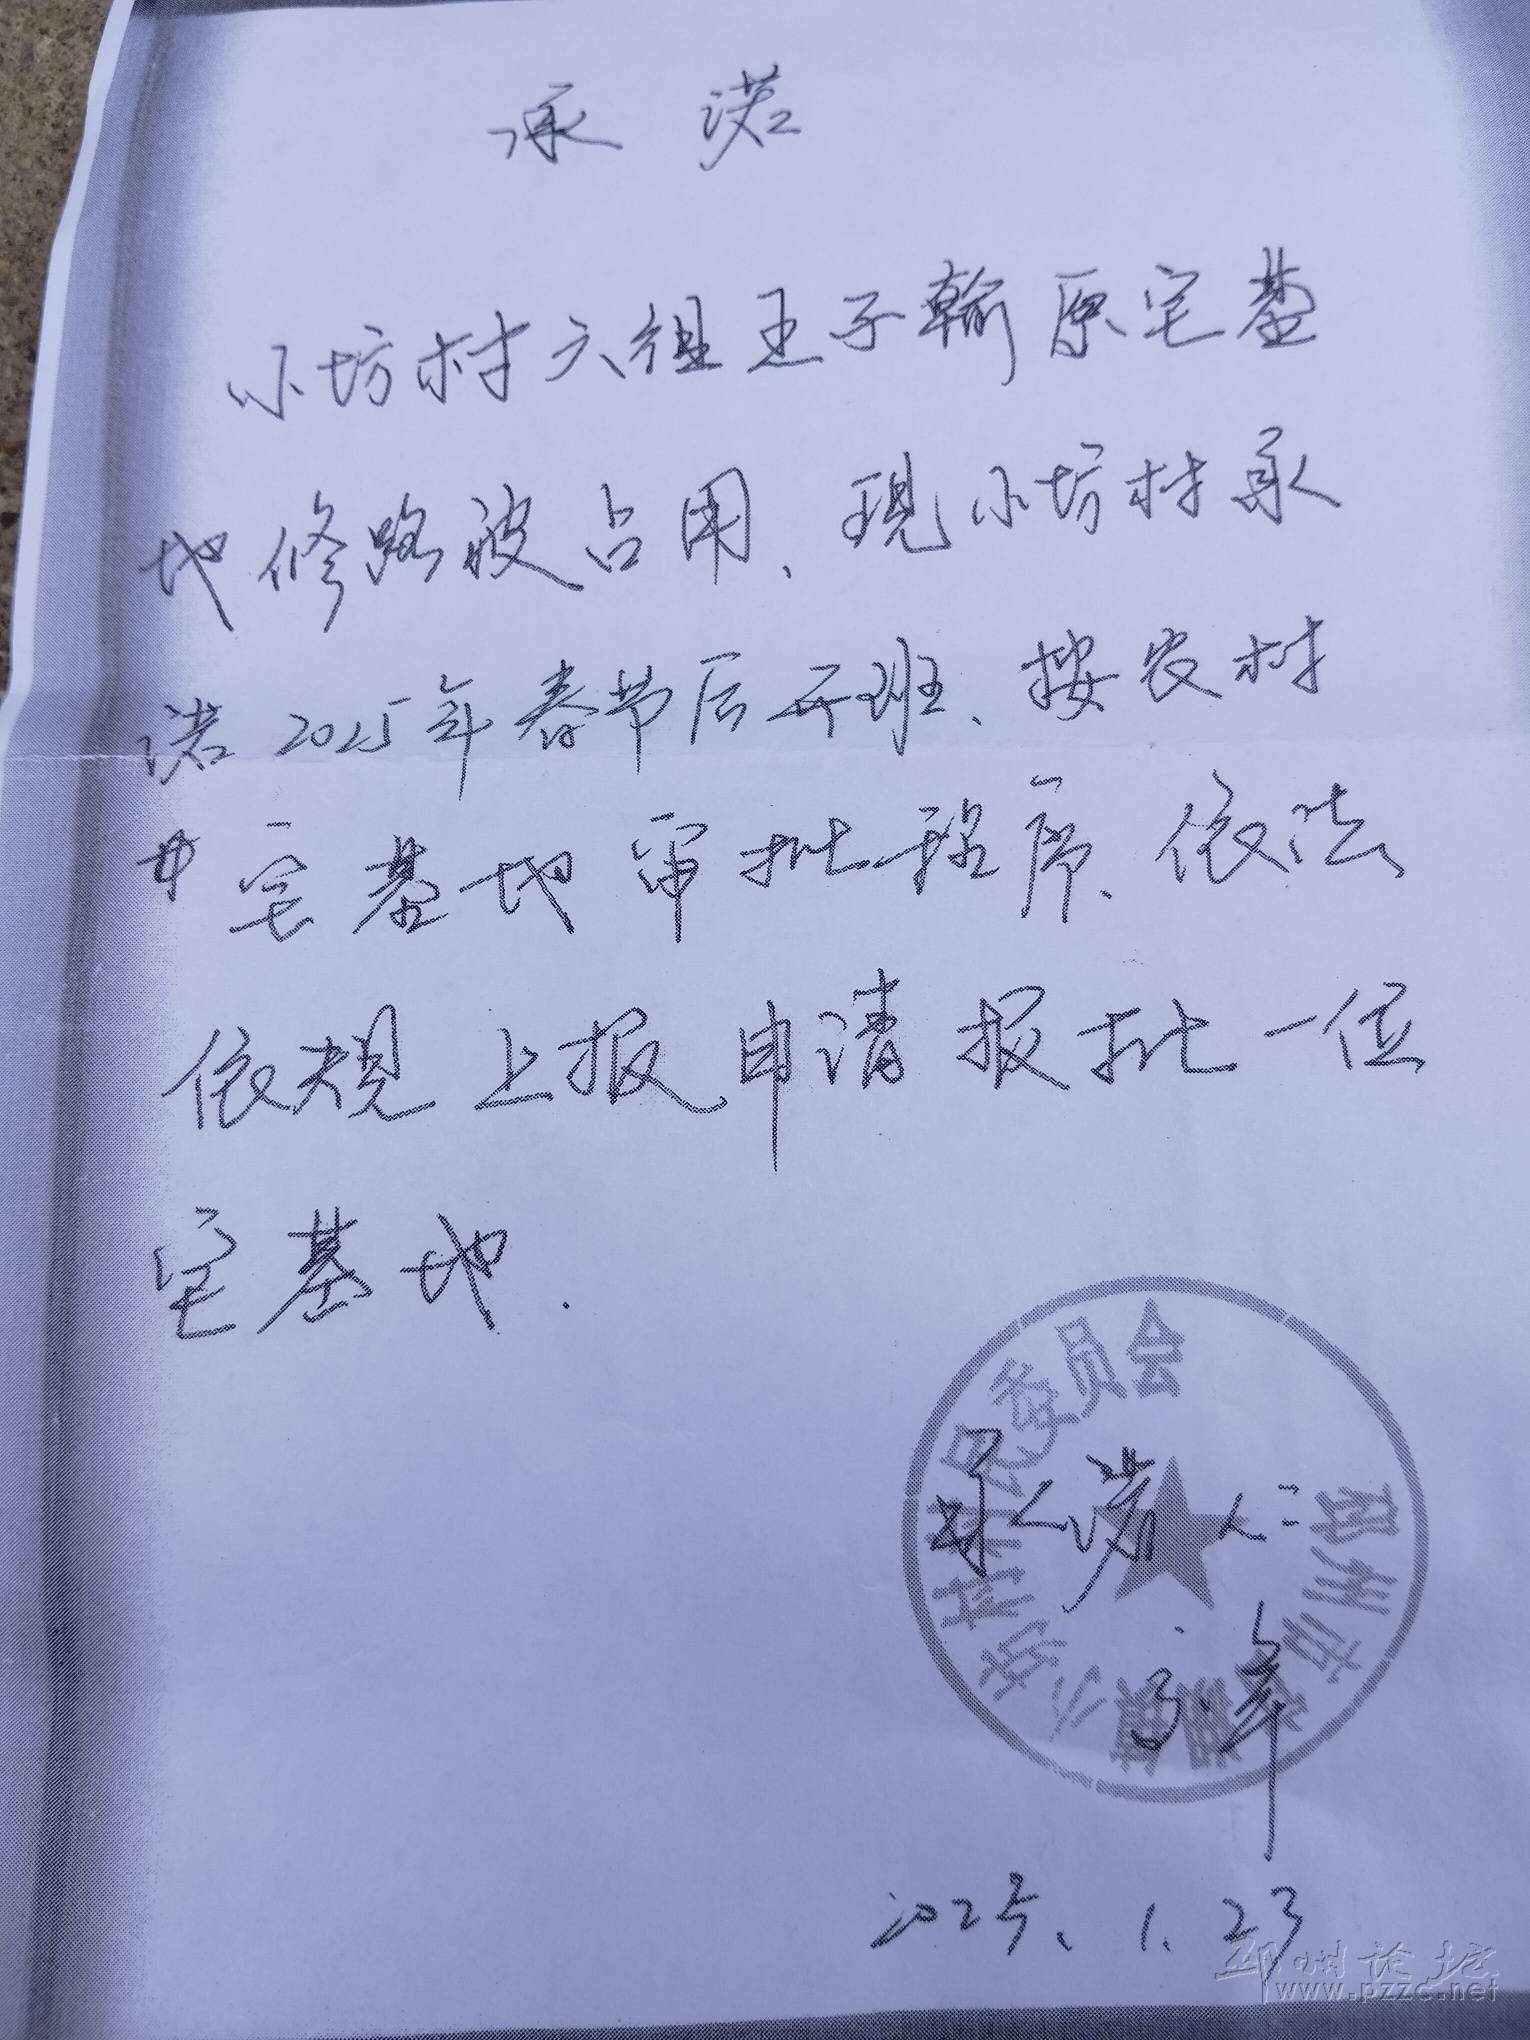 承 诺
小坊村六组王子翰原宅基
地修路被占用、现小坊村承
诺2025年春节后开班、按农村
宅基地审批程序、依法
依规上报申请报批一位
宅基地.
邳州市 镇小坊村村民委员会
承诺人:
2025.1.23
邳州论坛
www.pzzc.net